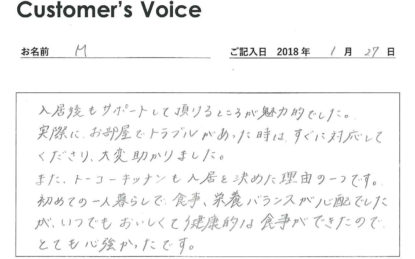 Customer's Voice
お名前 M ご記入日 2018 年 1 月 27 日
入居後もサポートして頂けるところが魅力的でした。
実際に、お部屋でトラブルがあった時は、すぐに対応して
くださり、大変助かりました。
また、トーコーキッチンも入居を決めた理由の一つです。
初めての一人暮らしで、食事、栄養バランスが心配でした
が、いつでもおいしくて健康的な食事ができたので、
とても心強かったです。